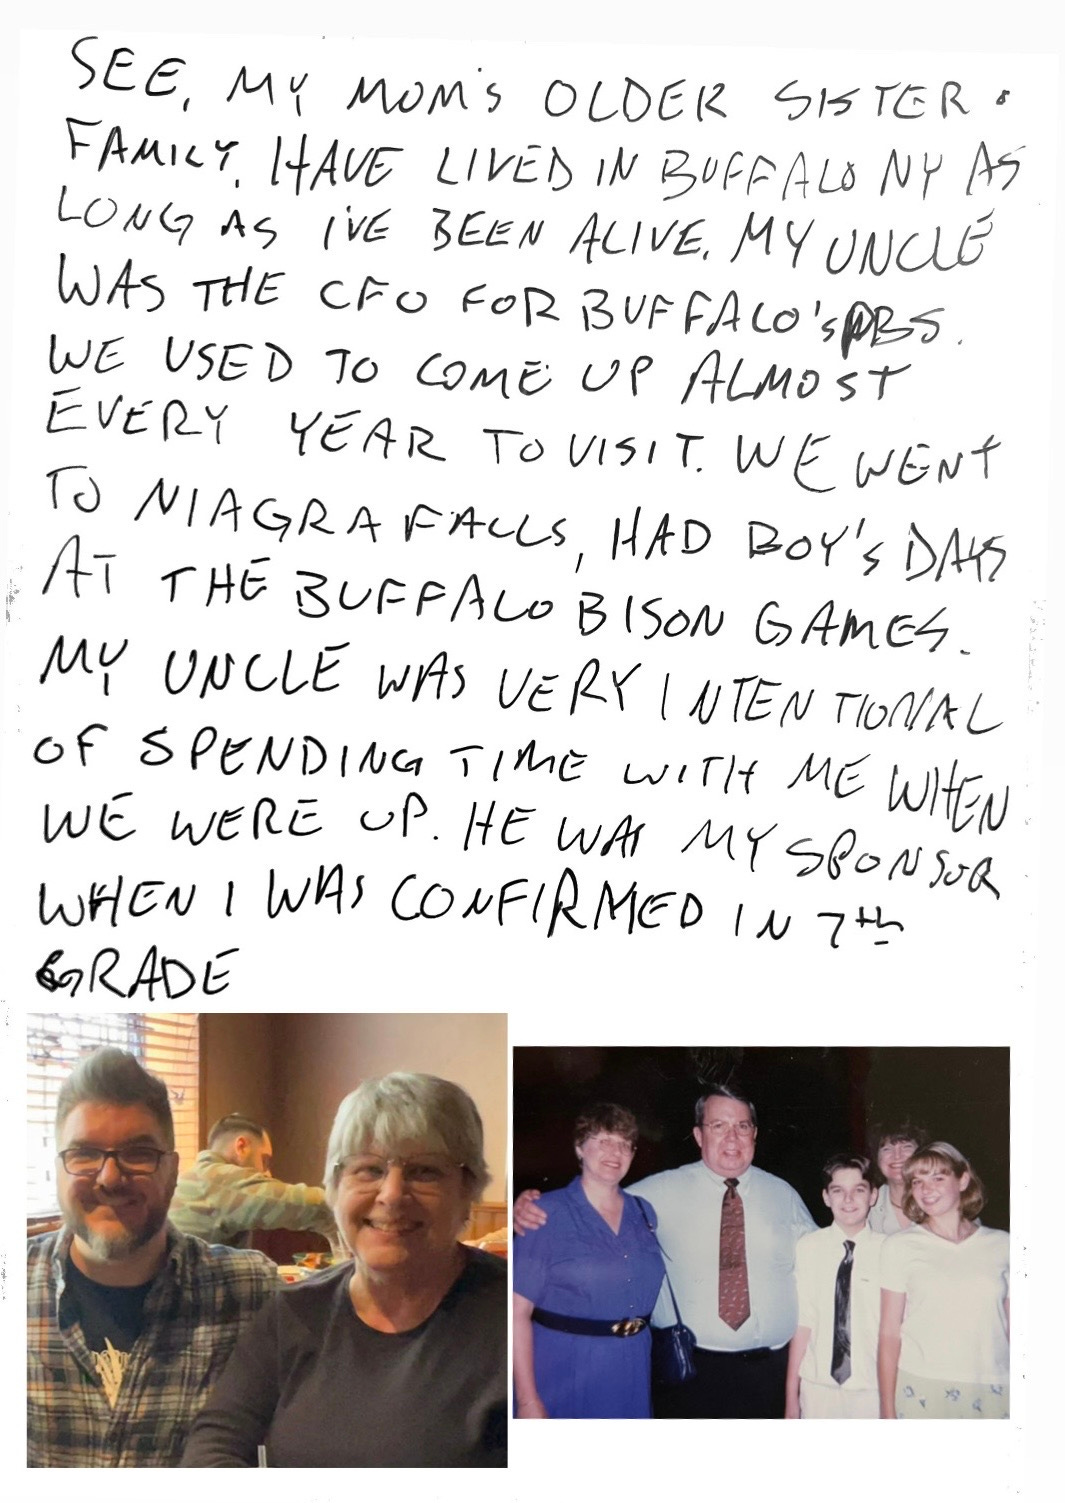 SEE, MY MOM'S OLDER SISTER &
FAMILY, HAVE LIVED IN BUFFALO NY AS
LONG AS I'VE BEEN ALIVE. MY UNCLE
WAS THE CFO FOR BUFFALO'S PBS.
WE USED TO COME UP ALMOST
EVERY YEAR TO VISIT. WE WENT
TO NIAGRA FALLS, HAD BOY'S DAYS
AT THE BUFFALO BISON GAMES.
MY UNCLE WAS VERY INTENTIONAL
OF SPENDING TIME WITH ME WHEN
WE WERE UP. HE WAS MY SPONSOR
WHEN I WAS CONFIRMED IN 7th
GRADE